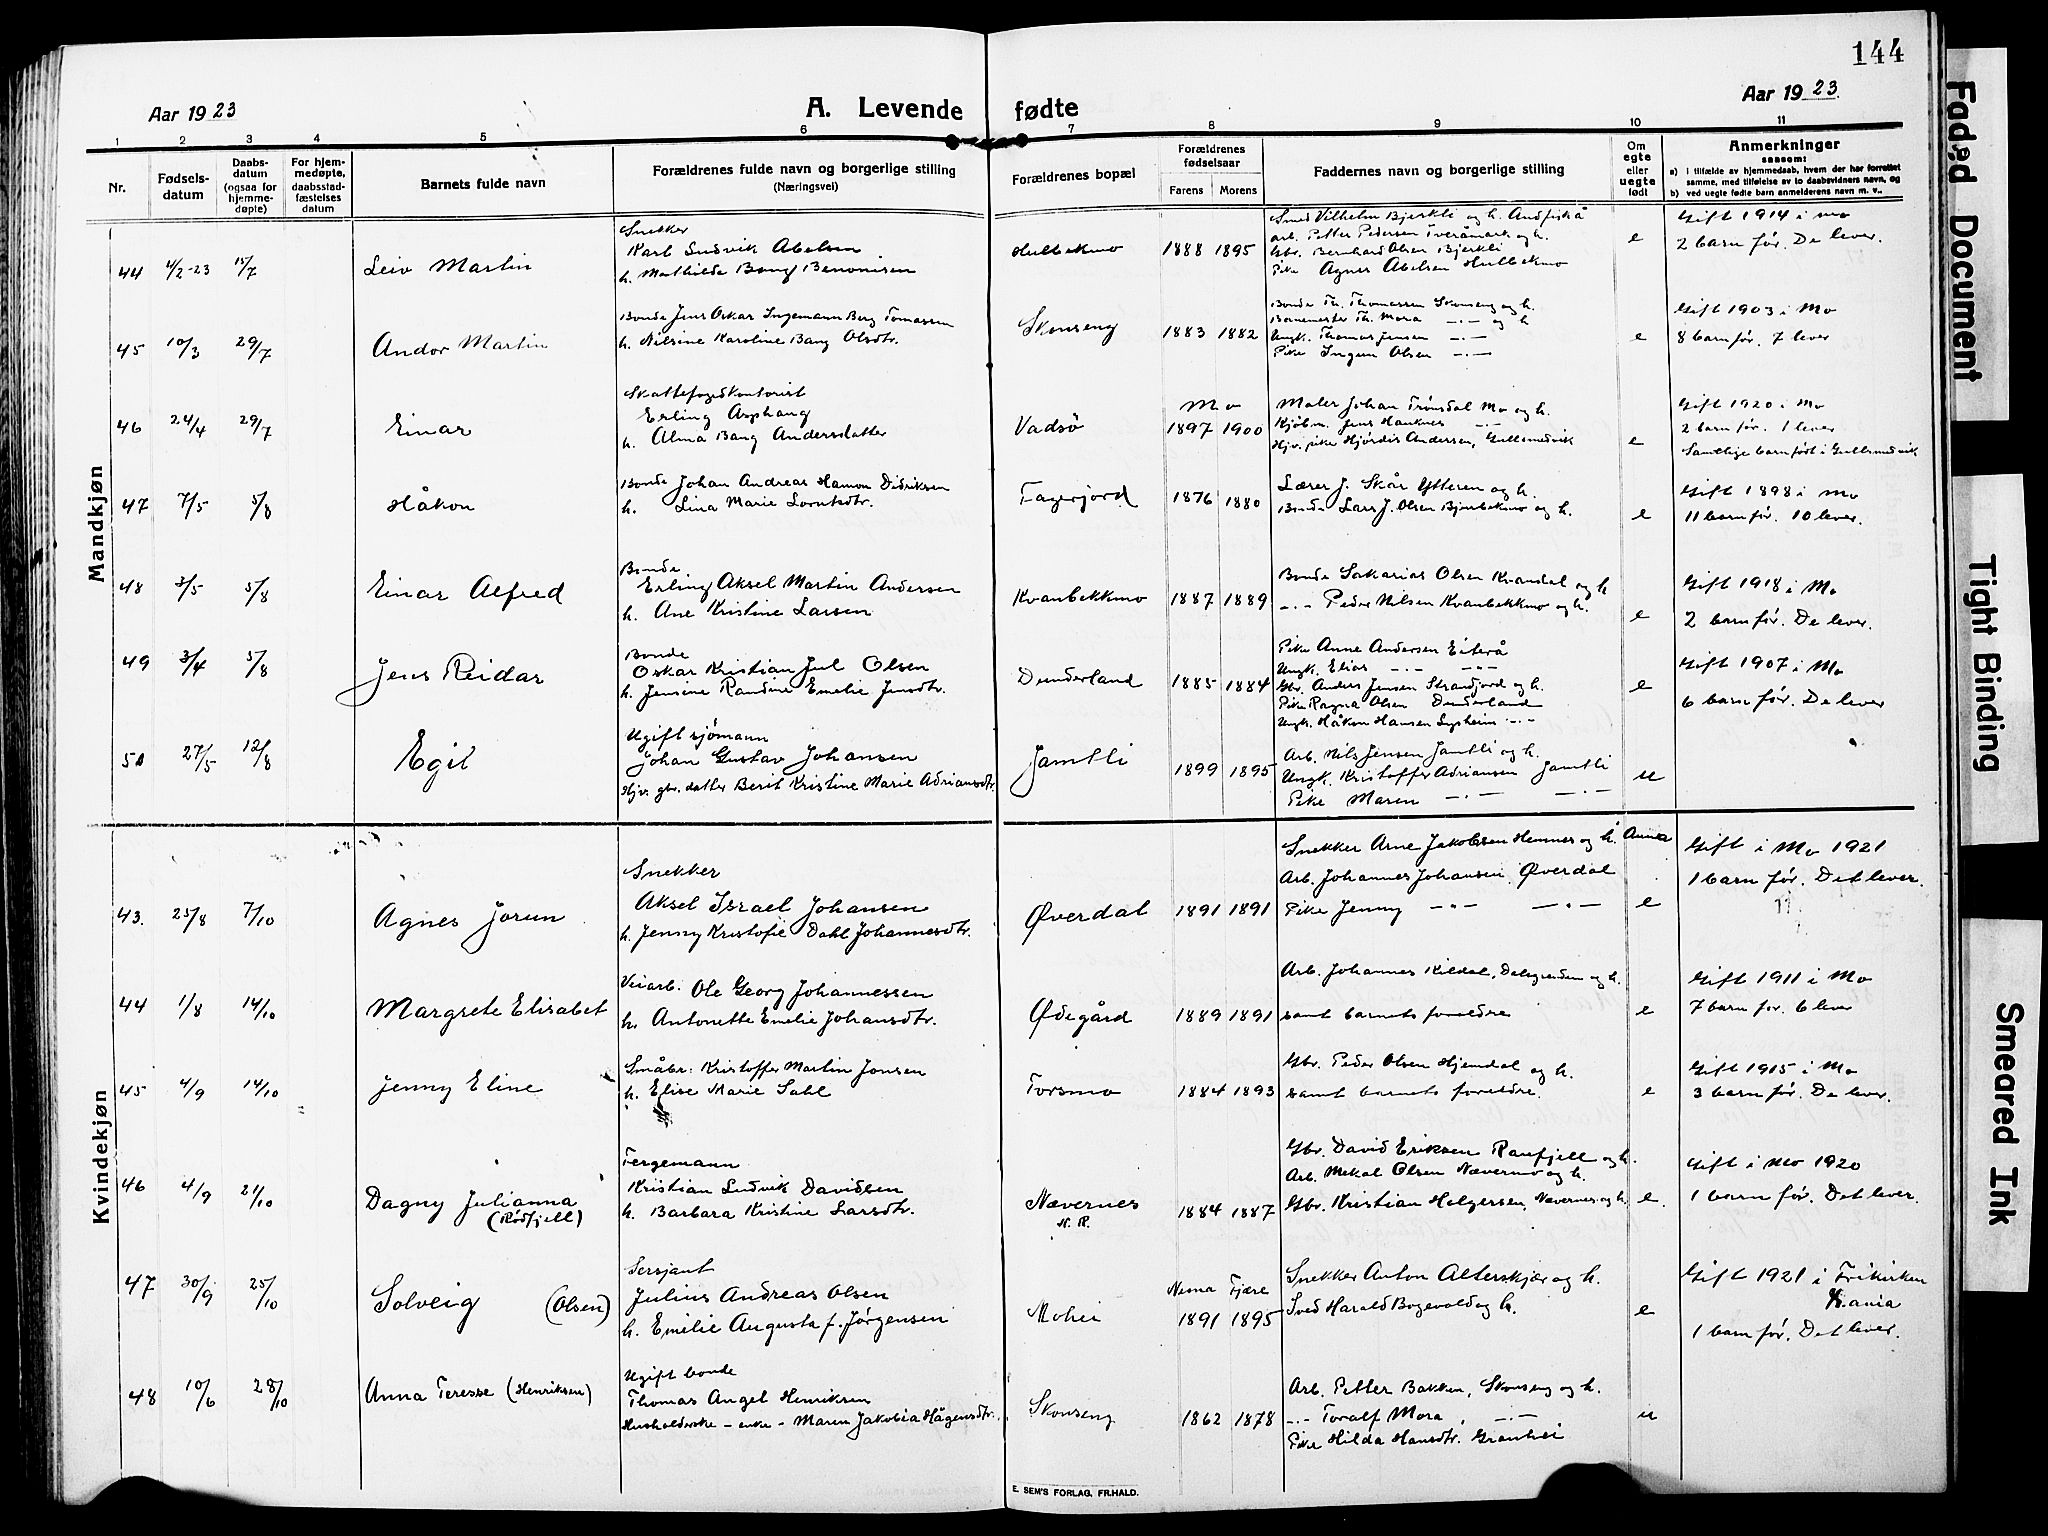 144
Aar 1923
A. Levende fødte
Aar 1923.
1 2 3 4 5 6 7 8 9 10 11
Nr.
Fødsels-
datum
Daabs-
datum
(ogsaa for
hjemme-
døpte)
For hjem-
medøpte,
daabsstad-
fæstelses
datum
Barnets fulde navn
Forældrenes fulde navn og borgerlige stilling
(Næringsvei)
Forældrenes bopæl
Forældrenes
fødselsaar
Farens Morens
Faddernes navn og borgerlige stilling
Om
egte
eller
uegte
født
Anmerkninger
saasom:
a) i tilfælde av hjemmedaab, hvem der har forrettet
samme, med tilføielse av to daabsvidners navn, og
b) ved uegte fødte barn anmelderens navn m. v..
Mandkjøn
44 4/2-23 15/7 Leiv Martin
Snekker
Karl Ludvik Abelsen
h. Mathilde Bang Benonisen
Hulbekmo 1888 1895
Smed Vilhelm Bjerkli og h. Andfiskå
arb. Petter Pedersen Tveråmark og h.
Gbr. Bernhard Olsen Bjerkli
Pike Agnes Abelsen Hulbekmo
e
Gift 1914 i Mo
2 barn før. De lever.
45 10/3 29/7 Andor Martin
Bonde Jens Oskar Ingemann Berg Tomassen
h. Nilsine Karoline Bang Olsdtr.
Skonseng 1883 1882
Bonde Th. Thomassen Skonseng og h.
Banemester Th. Mora —.— og h
Ungk. Thomas Jensen —.—
Pike Ingun Olsen —.—
e
Gift 1903 i Mo
8 barn før. 7 lever
46 24/4 29/7 Einar
Skattefogedkontorist
Erling Asphaug
h. Alma Bang Andersdatter
Vadsö
Mo
1897 1900
Maler Johan Trónsdal Mo og h.
Kjøbm. Jens Hauknes —.—
Hjv. pike Hjørdis Andersen, Gullsmedvik
e
Gift 1920 i Mo
2 barn før. 1 lever
Samtlige barn født i Gullsmedvik
47 7/5 5/8 Håkon
Bonde Johan Andreas Hamon Didriksen
h. Lina Marie Lorntsdtr.
Fagerjord 1876 1880
Lærer J. Skår Ytteren og h.
Bonde Lars J. Olsen Bjørbekmo og h.
e
Gift 1898 i Mo
11 barn før. 10 lever.
48 3/5 5/8 Einar Alfred
Bonde
Erling Aksel Martin Andersen
h. Ane Kristine Larsen
Kvanbekkmo 1887 1889
Bonde Sakarias Olsen Kvandal og h
—.— Peder Nilsen Kvanbekkmo og h.
e
Gift 1918 i Mo
2 barn før. De lever.
49 3/4 5/8 Jens Reidar
Bonde
Oskar Kristian Jul Olsen
h. Jensine Randine Emelie Jensdtr.
Dunderland 1885 1884
Pike Anne Andersen Eiterå
Ungk. Elias —.— —.—
Gbr. Anders Jensen Strandjord og h.
Pike Ragna Olsen Dunderland
Ungk. Håkon Hansen —.—
e
Gift 1907 i Mo
6 barn før. De lever
50 27/5 12/8 Egil
Ugift sjømann
Johan Gustav Johansen
Hjv. gbr. datter Berit Kristine Marie Adriansdtr.
Jamtli 1899 1895
Arb. Nils Jensen Jamtli og h.
Ungk. Kristoffer Adriansen Jamtli
Pike Maren —.— —.—
u
Kvindekjøn
43. 25/8 7/10 Agnes Jorun
Snekker
Aksel Israel Johansen
h. Jenny Kristofie Dahl Johannesdtr.
Øverdal 1891 1891
Snekker Arne Jakobsen Hemnes og h. Anna
Arb. Johannes Johansen, Øverdal
Pike Jenny —.— —.—
e
Gift i Mo 1921
1 barn før. Det lever.
44 1/8 14/10 Margrete Elisabet
Veiarb. Ole Georg Johannessen
h. Antonette Emelie Johansdtr.
Ødegård 1889 1891
Arb. Johannes Kildal, Dalsgrenden og h.
samt barnets foreldre
e
Gift 1911 i Mo
7 barn før. 6 lever
45 4/9 14/10 Jenny Eline
Småbr: Kristoffer Martin Jonsen
h. Elise Marie Dahl
Torsmo 1884 1893
Gbr. Peder Olsen Hjemdal og h.
samt barnets foreldre.
e
Gift 1915 i Mo
3 barn før. De lever.
46 4/9 21/10 Dagny Julianna
(Rødfjell)
Fergemann
Kristian Ludvik Davidsen
h. Barbara Kristine Larsdtr.
Nævernes
N. R.
1884 1887
Gbr. David Eriksen Raufjell og h.
Arb. Mekal Olsen Nævermo og h.
Gbr. Kristian Helgersen, Nævernes og h.
e.
Gift i Mo 1920
1 barn før. Det lever.
47 30/9 25/10 Solveig (Olsen)
Sersjant
Julius Andreas Olsen
h. Emelie Augusta f. Jørgensen
Mohei
Nesna Fjære
1891 1895
Snekker Anton Alterskjær og h.
Sved Harald Bogevold og h.
e
Gift 1921 i Frikirken
1 barn før. Det lever.
48 10/6 28/10 Anna Teresse (Henriksen)
Ugift bonde
Thomas Angel Henriksen
Husholderske – enke – Maren Jakobia Hågensdtr.
Skonseng 1862 1878
Arb. Petter Bakken, Skonseng og h.
—.— Toralf Mora, —.—
Pike Hilda Hansdtr. Granhei
u
E. SEM'S FORLAG, FR.HALD.
Faded Document
Tight Binding
Smeared Ink